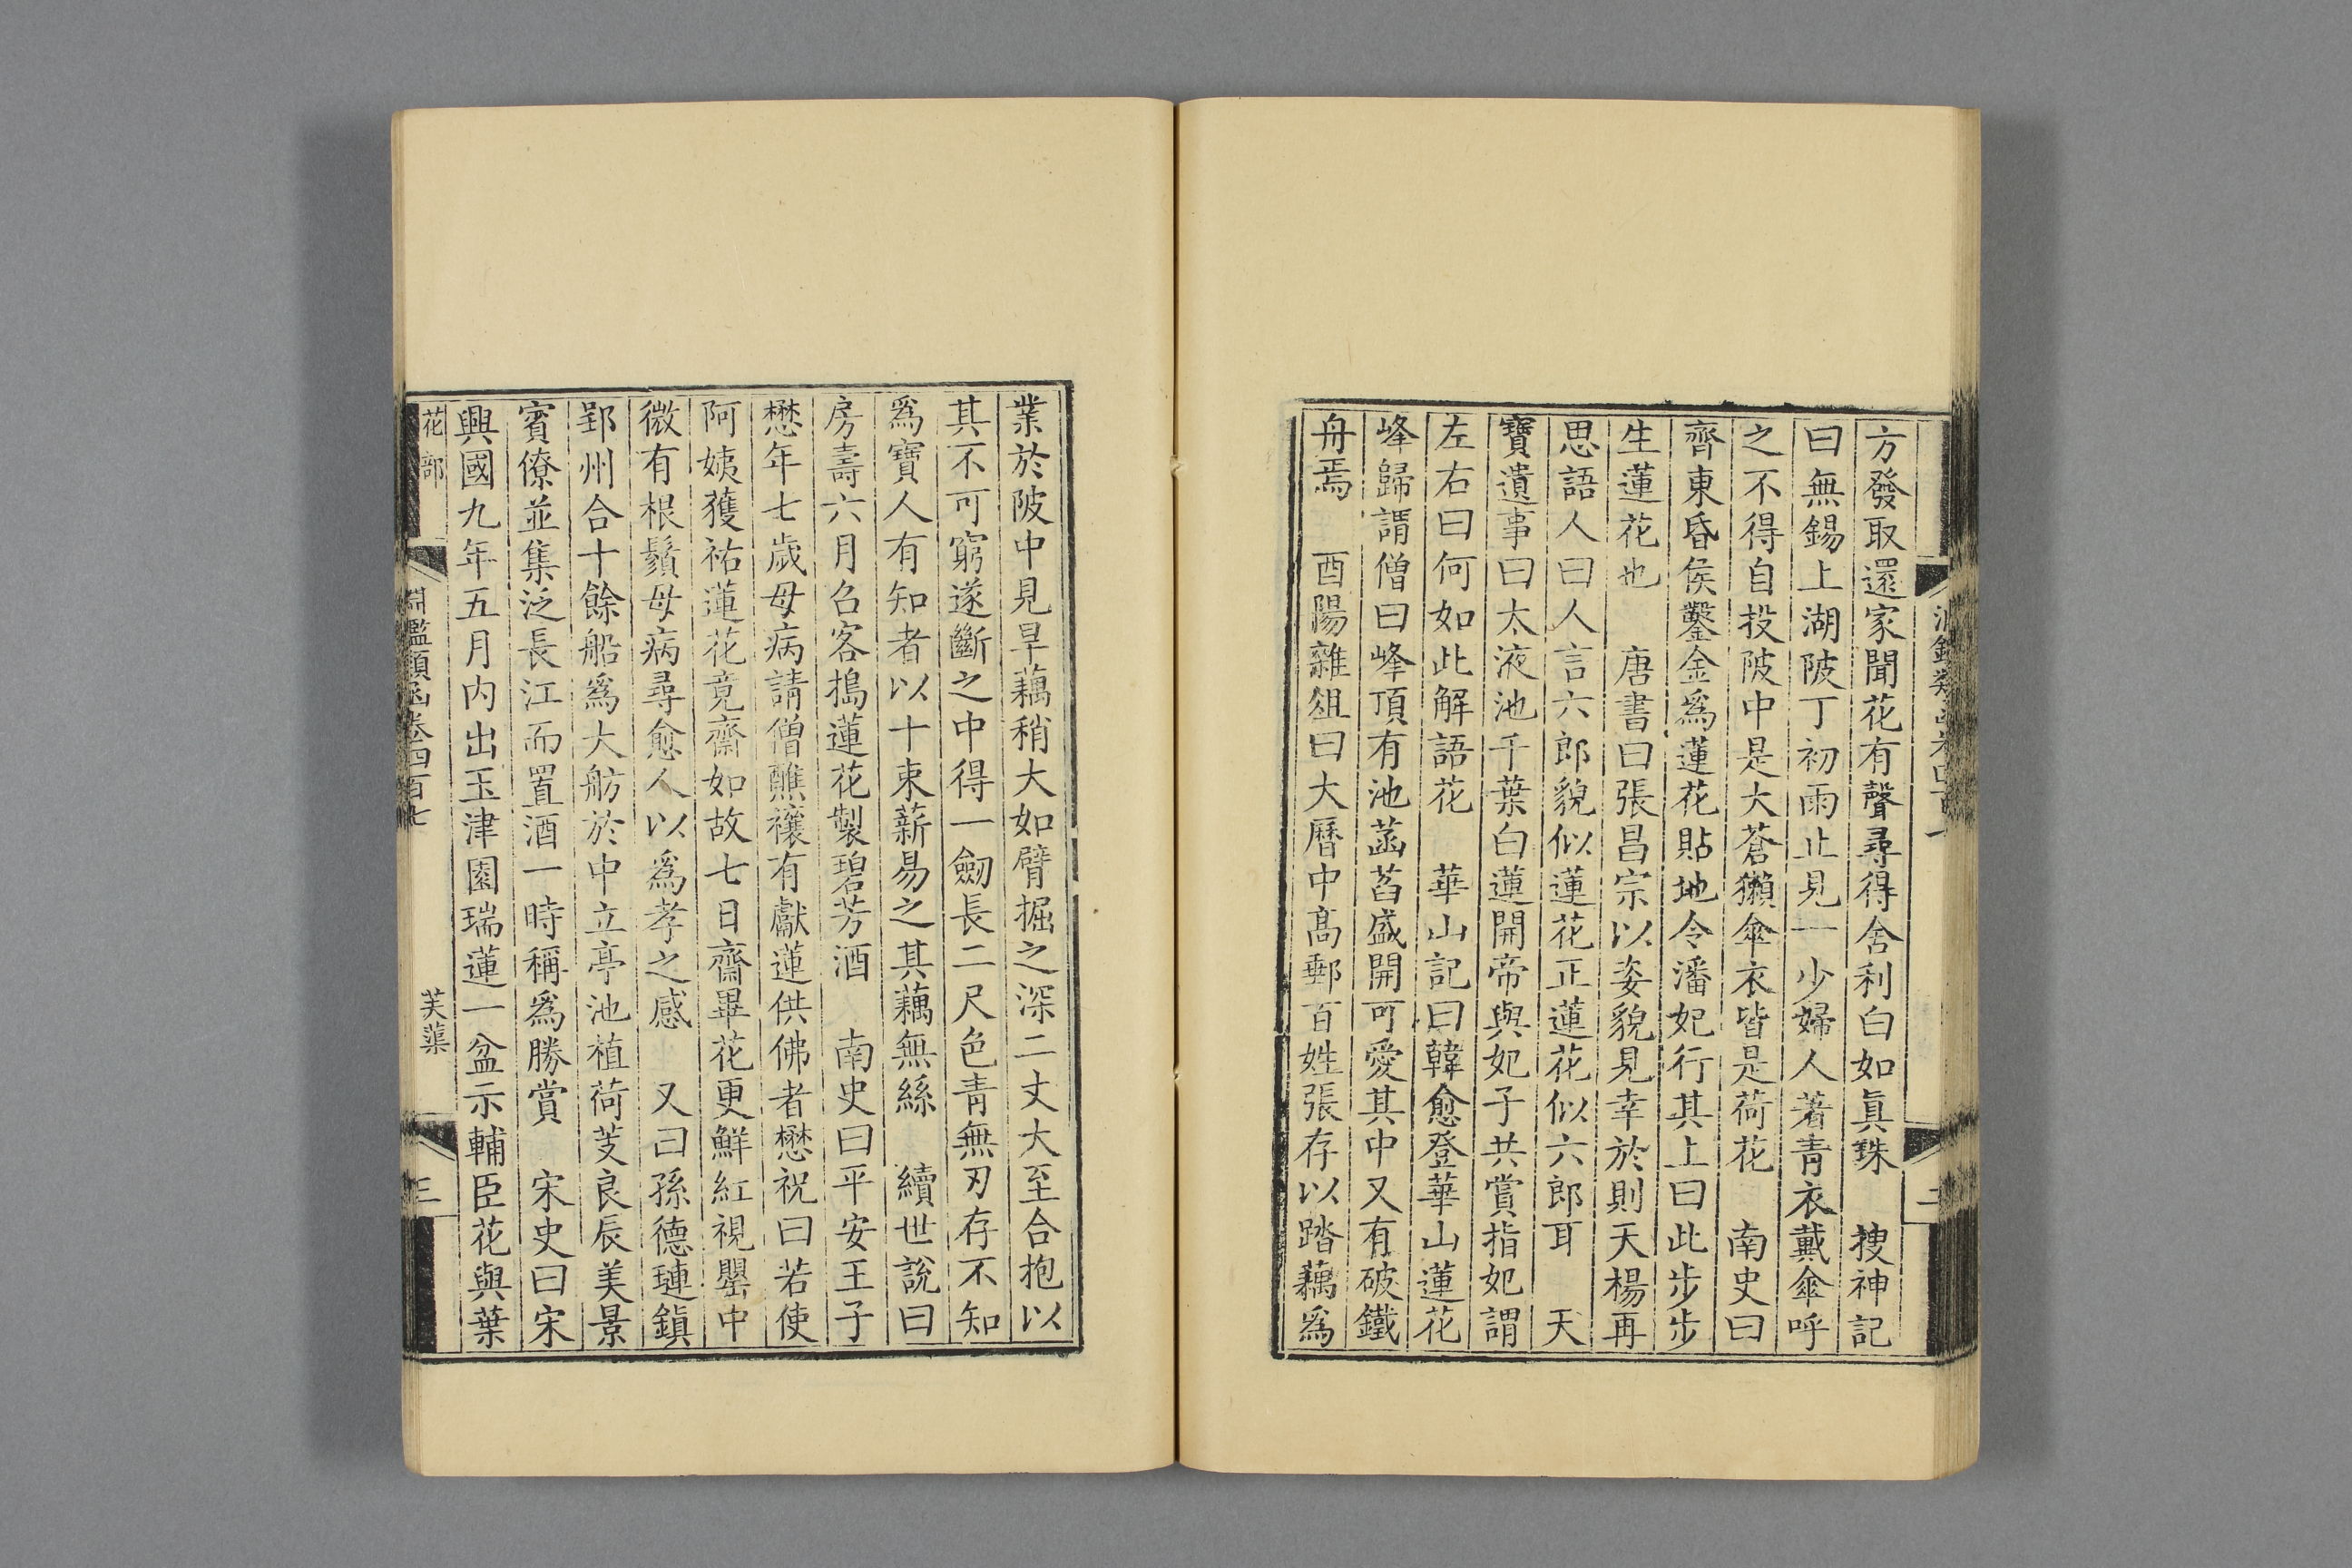 方發取還家聞花有聲尋得舍利白如眞珠　搜神記
曰無錫上湖陂丁初雨止見一少婦人著靑衣戴傘呼
之不得自投陂中是大蒼獺傘衣皆是荷花　南史曰
齊東昏侯鑿金爲蓮花貼地令潘妃行其上曰此步步
生蓮花也　唐書曰張昌宗以姿貌見幸於則天楊再
思語人曰人言六郎貌似蓮花正蓮花似六郎耳　天
寶遺事曰太液池千葉白蓮開帝與妃子共賞指妃謂
左右曰何如此解語花　華山記曰韓愈登華山蓮花
峰歸謂僧曰峰頂有池菡萏盛開可愛其中又有破鐵
舟焉　酉陽雜俎曰大曆中高郵百姓張存以踏藕爲
業於陂中見旱藕稍大如臂掘之深二丈大至合抱以
其不可窮遂斷之中得一劒長二尺色靑無刃存不知
爲寶人有知者以十束薪易之其藕無絲　續世說曰
房壽六月召客搗蓮花製碧芳酒　南史曰平安王子
懋年七歲母病請僧醮禳有獻蓮供佛者懋祝曰若使
阿姨獲祐蓮花竟齋如故七日齋畢花更鮮紅視罌中
微有根鬚母病尋愈人以爲孝之感　又曰孫德璉鎮
郢州合十餘船爲大舫於中立亭池植荷芰良辰美景
賓僚並集泛長江而置酒一時稱爲勝賞　宋史曰宋
興國九年五月内出玉津園瑞蓮一盆示輔臣花與葉
花部　淵鑑類函卷四百七　芙蕖　三